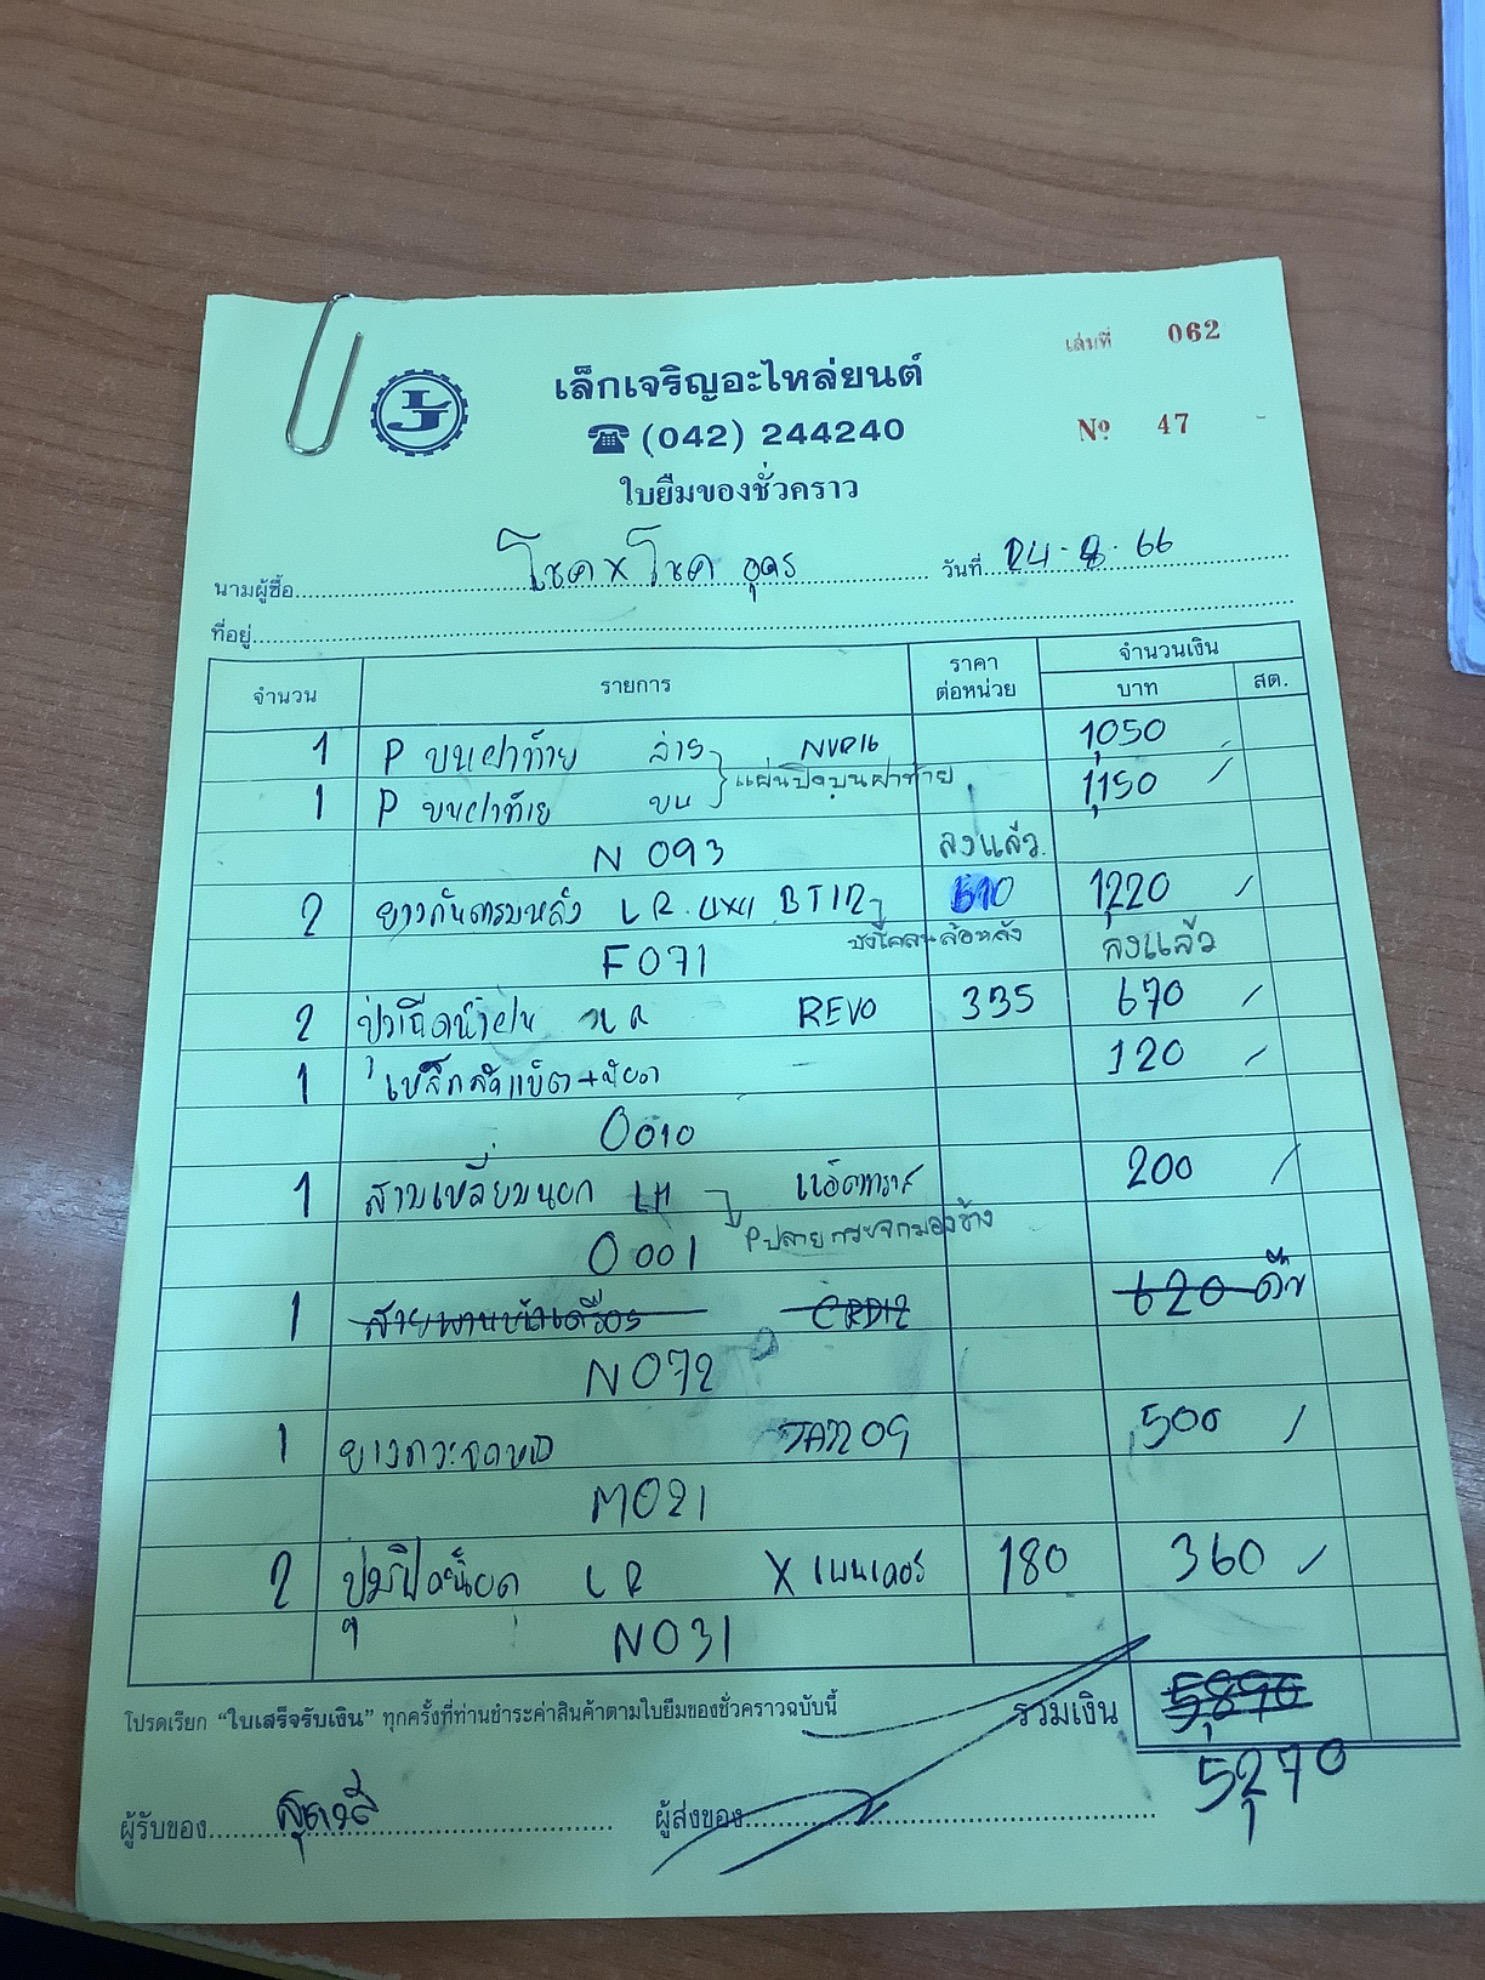 เล่มที่ 062
เล็กเจริญอะไหล่ยนต์
LJ
☎ (042) 244240
Nº 47
ใบยืมของชั่วคราว
นามผู้ซื้อ โชค x โชค อุดร วันที่ 24-8-66
ที่อยู่
จำนวน รายการ ราคาต่อหน่วย จำนวนเงิน
บาท สต.
1 P บนฝาท้าย ล่าง NVR16 1,050
แผ่นปิดบนฝาท้าย
1 P บนฝาท้าย บน 1,150
N 093 ลงแล้ว
2 ยางกันโคลนหลัง L R 4x4 BT12 610 1,220
บังโคลนล้อหลัง
F071 ลงแล้ว
2 LR REVO 335 670
1 เหล็กรัดแบ็ต+น๊อต 120
0010
1 สามเหลี่ยมนอก LH 200
P ปลายกระจกมองข้าง
0001
1 สายพานหน้าเครื่อง CRD12 620 คืน
N072
1 500
M021
2 LR X เพนเดอร์ 180 360
N031
โปรดเรียก “ใบเสร็จรับเงิน” ทุกครั้งที่ท่านชำระค่าสินค้าตามใบยืมของชั่วคราวฉบับนี้ รวมเงิน 5,890
5,270
ผู้รับของ ผู้ส่งของ